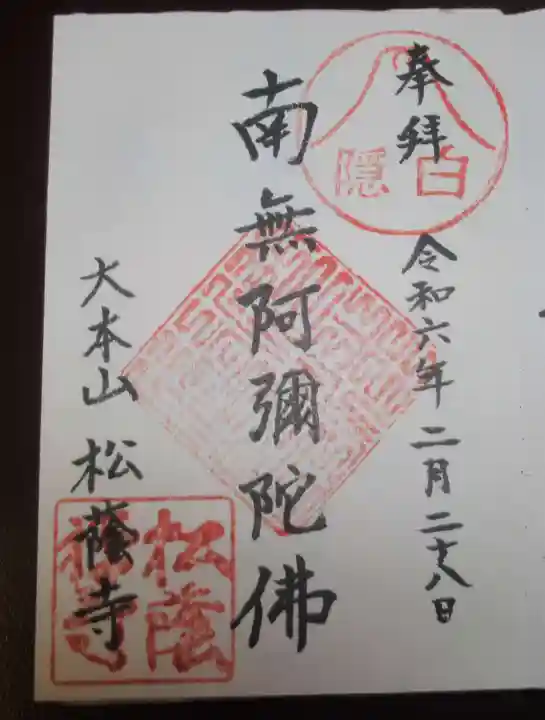 奉拜
白隱
令和六年二月二十八日
南無阿彌陀佛
大本山 松蔭寺
松蔭
禅寺